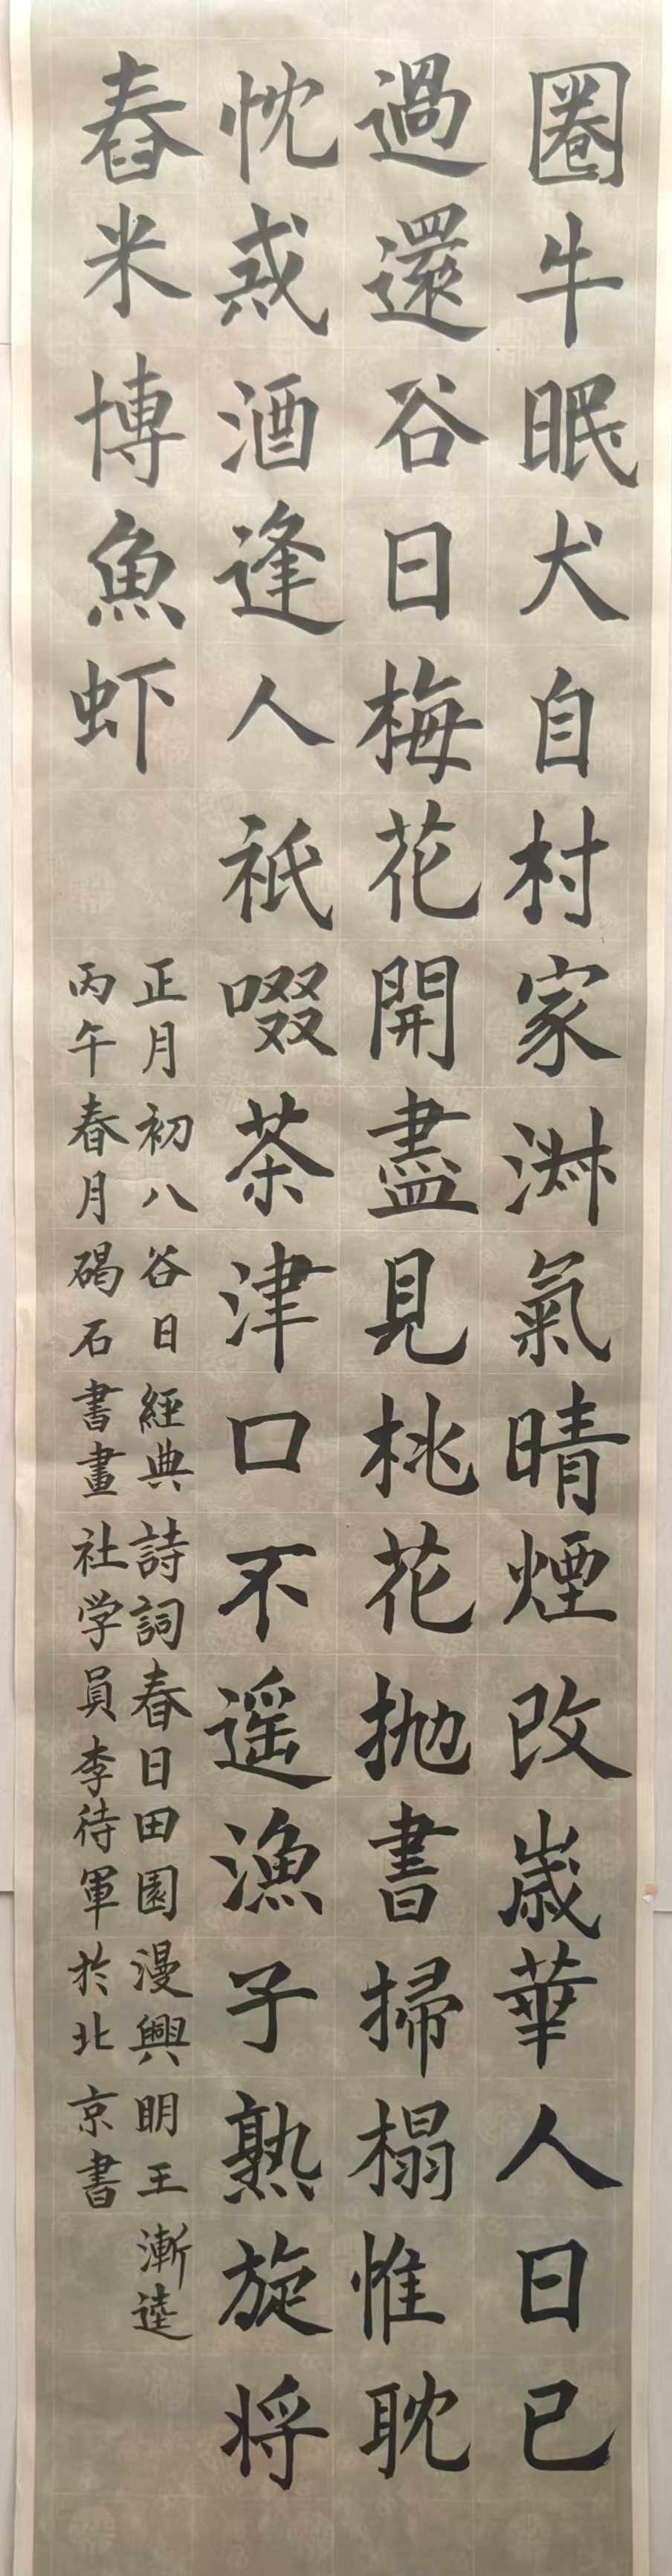 圈牛眠犬自村家淑氣晴煙改歲華人日已
過還谷日梅花開盡見桃花拋書掃榻惟耽
忱惑酒逢人祇啜茶津口不遥漁子熟旋将
舂米博魚虾
正月初八谷日經典詩詞春日田園漫興明王漸逵
丙午春月碣石書畫社学員李待軍於北京書